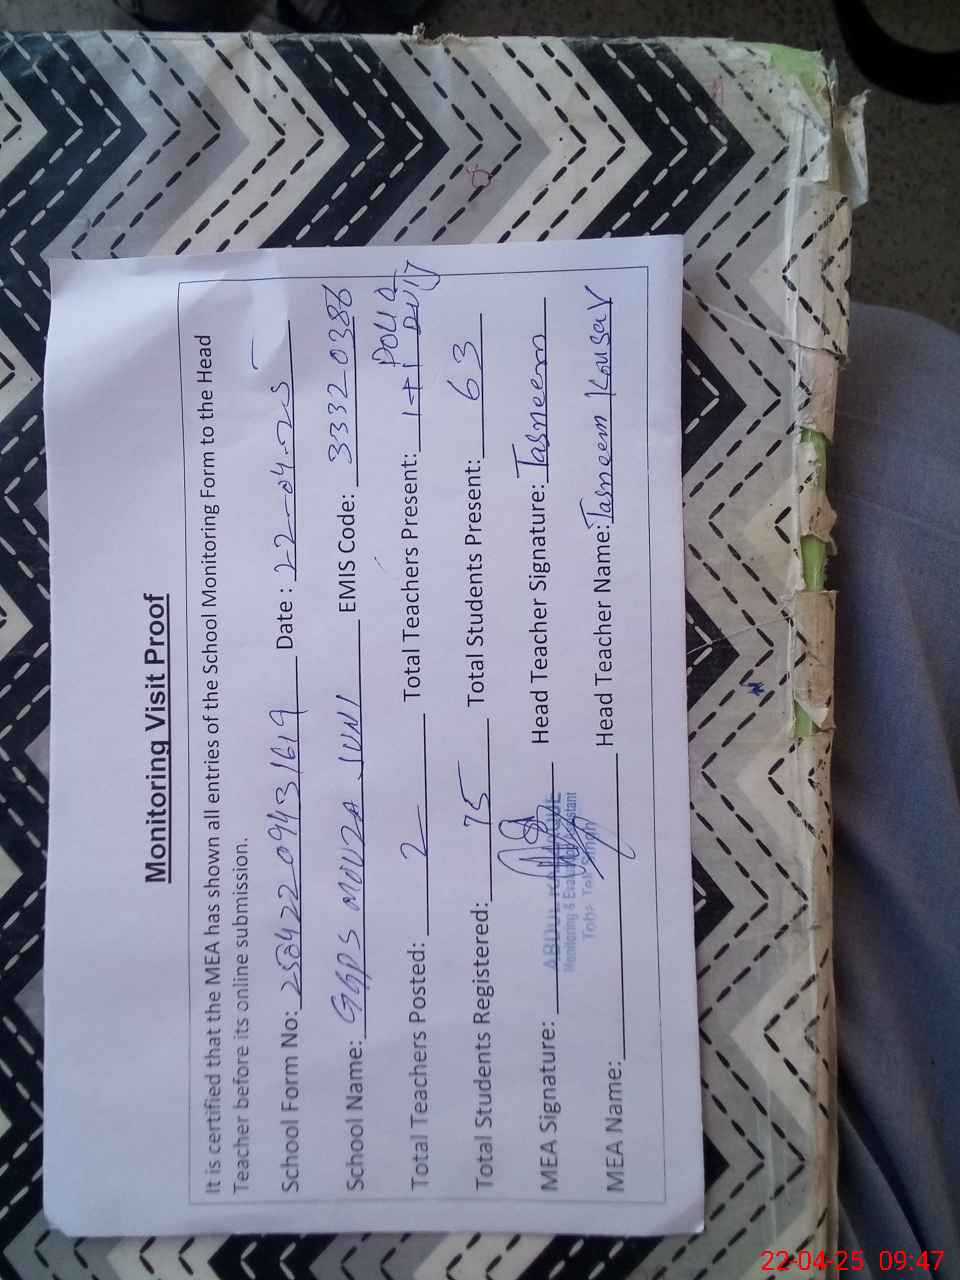 Monitoring Visit Proof
It is certified that the MEA has shown all entries of the School Monitoring Form to the Head
Teacher before its online submission.
School Form No: 250422 0943 1619 Date : 22-04-25
School Name: GGPS MOUZA JUNI EMIS Code: 3332 0386
Total Teachers Posted: 2 Total Teachers Present: 1+1 POLIO DUTY
Total Students Registered: 75 Total Students Present: 63
MEA Signature: Head Teacher Signature: Tasneem
ABDUL
Monitoring & Assistant
Toba Tek Singh
MEA Name: Head Teacher Name: Tasneem Kousar
22-04-25 09:47